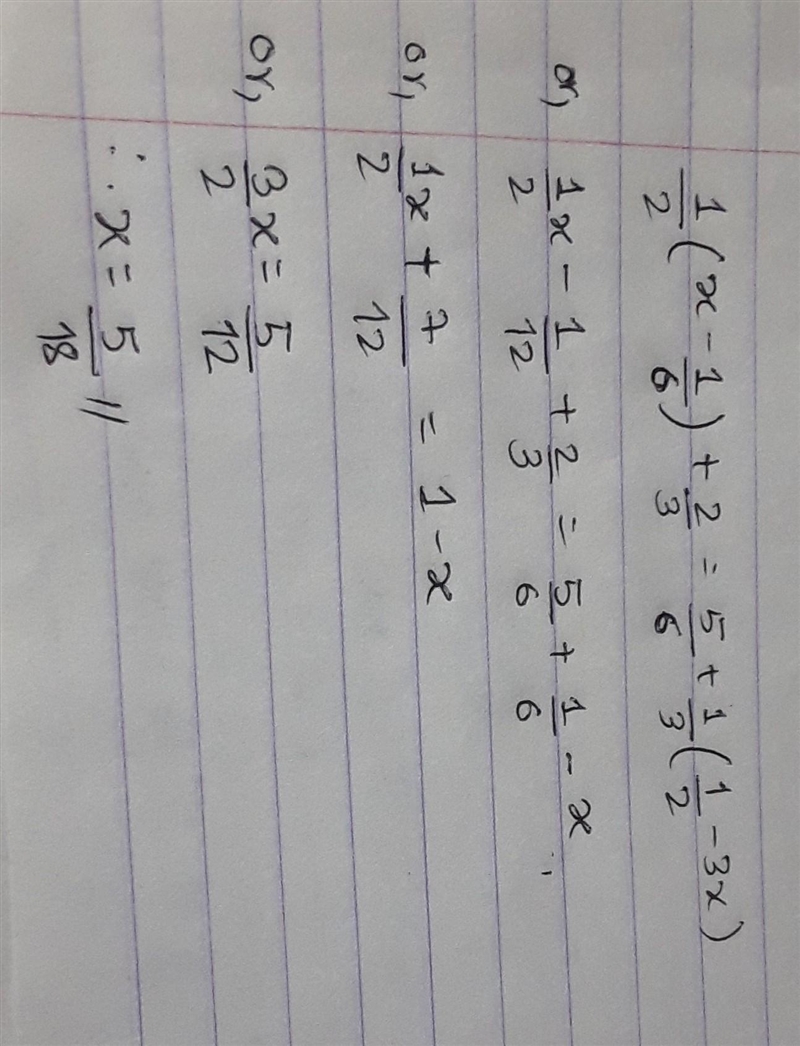 1/2 (x - 1/6) + 2/3 = 5/6 + 1/3 (1/2 - 3x)
or, 1/2 x - 1/12 + 2/3 = 5/6 + 1/6 - x
or, 1/2 x + 7/12 = 1 - x
or, 3/2 x = 5/12
∴ x = 5/18 //